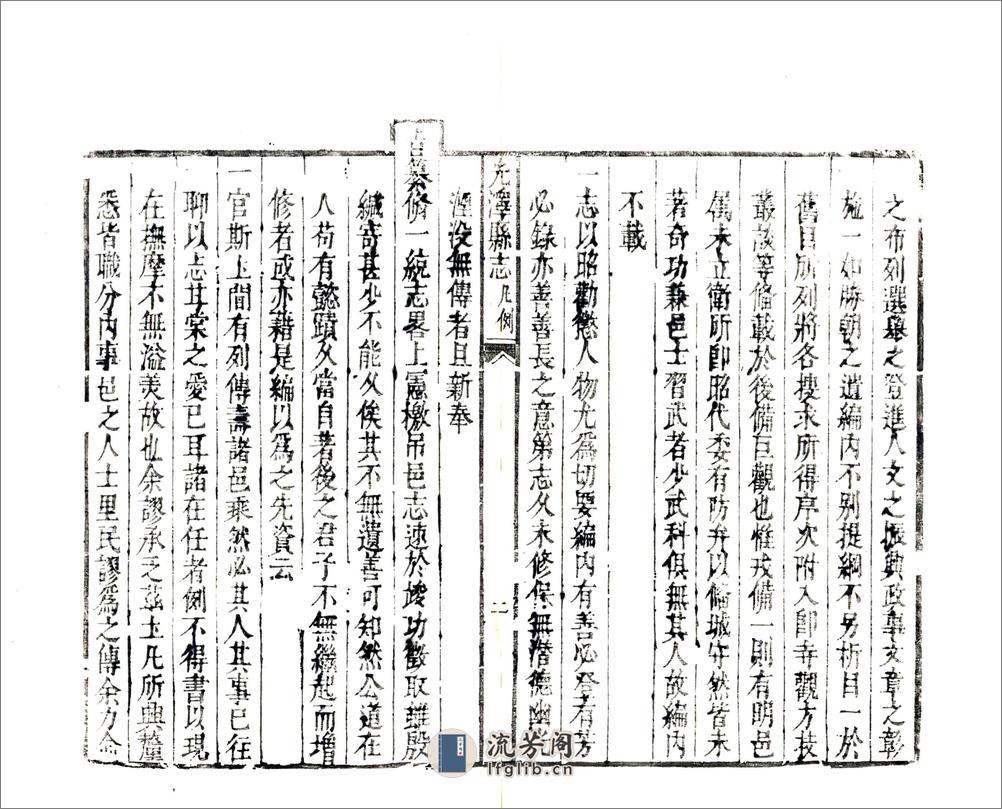 之布列選舉之登進人文之振興政事文章之彰
施一如勝朝之遺編內不別提綱不另析目一於
舊目所列將各搜求所得序次附入卽寺觀方技
叢談等條載於後備巨觀也惟戎備一則有明邑
屬未立衛所卽昭代委有防弁以備城守然皆未
著奇功兼邑士習武者少武科俱無其人故編內
不載
一志以昭勸懲人物尤為切要編內有善必登者有芳
必錄亦善善長之意第志久未修保無潛德幽
湮沒無傳者且新奉
光澤縣志 凡例
二
旨纂脩一統志畧上憲檄吊邑志速於竣功徵取雖殷
緘寄甚少不能久俟其不無遺善可知然公道在
人苟有懿蹟久當自著後之君子不無繼起而增
修者或亦藉是編以為之先資云
一官斯土間有列傳壽諸邑乘然必其人其事已往
聊以志其棠之愛已耳諸在任者例不得書以現
在撫摩不無溢美故也余謬承乏茲土凡所興釐
悉皆職分內事邑之人士里民謬為之傳余力
流芳阁
lfglib.cn